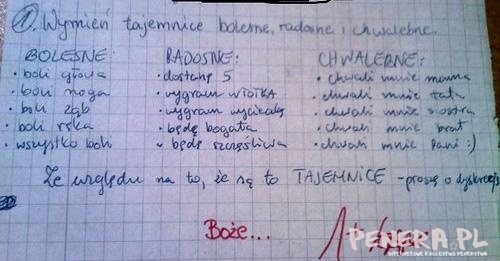 ① Wymień tajemnice bolesne, radosne i chwalebne.
BOLESNE: RADOSNE: CHWALEBNE:
• boli głowa • dostanę 5 • chwali mnie mama
• boli noga • wygram WIOTKA • chwali mnie tata
• boli ząb • wygram wycieczkę • chwali mnie siostra
• boli ręka • będę bogata • chwali mnie brat
• wszystko boli • będę szczęśliwa • chwali mnie Pani :)
Ze względu na to, że są to TAJEMNICE - proszę o dyskrecję
Boże... 1+
PENERA.PL